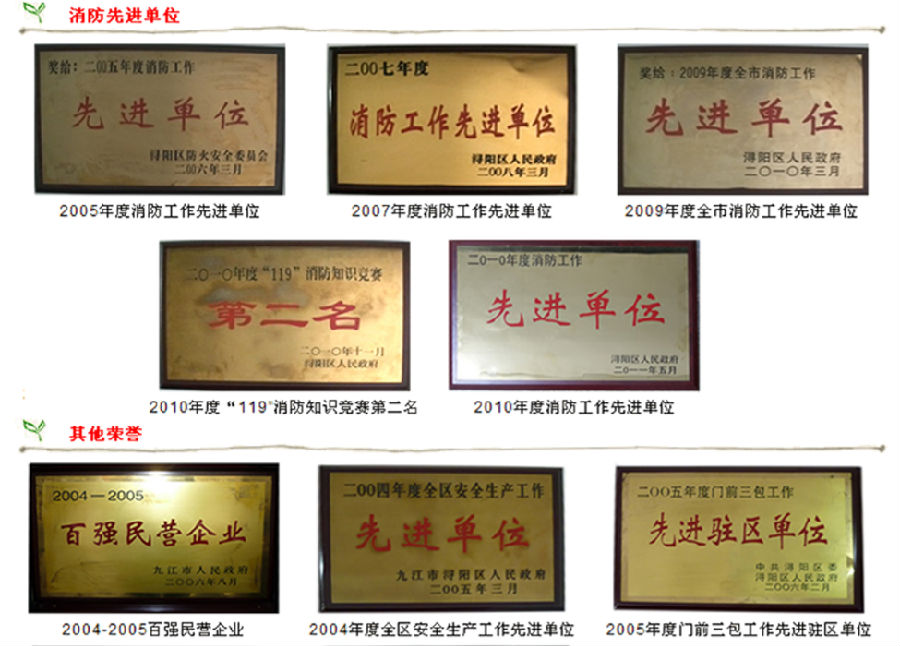 消防先进单位
奖给：二00五年度消防工作
先进单位
浔阳区防火安全委员会
二00六年三月
二00七年度
消防工作先进单位
浔阳区人民政府
二00八年三月
奖给：2009年度全市消防工作
先进单位
浔阳区人民政府
二〇一〇年三月
2005年度消防工作先进单位
2007年度消防工作先进单位
2009年度全市消防工作先进单位
二〇一〇年度“119”消防知识竞赛
第二名
二〇一〇年十一月
浔阳区人民政府
二0一0年度消防工作
先进单位
浔阳区人民政府
二0一一年五月
2010年度“119”消防知识竞赛第二名
2010年度消防工作先进单位
其他荣誉
2004—2005
百强民营企业
九江市人民政府
二〇〇六年八月
二00四年度全区安全生产工作
先进单位
九江市浔阳区人民政府
二00五年三月
二00五年度门前三包工作
先进驻区单位
中共浔阳区委
浔阳区人民政府
二00六年二月
2004-2005百强民营企业
2004年度全区安全生产工作先进单位
2005年度门前三包工作先进驻区单位